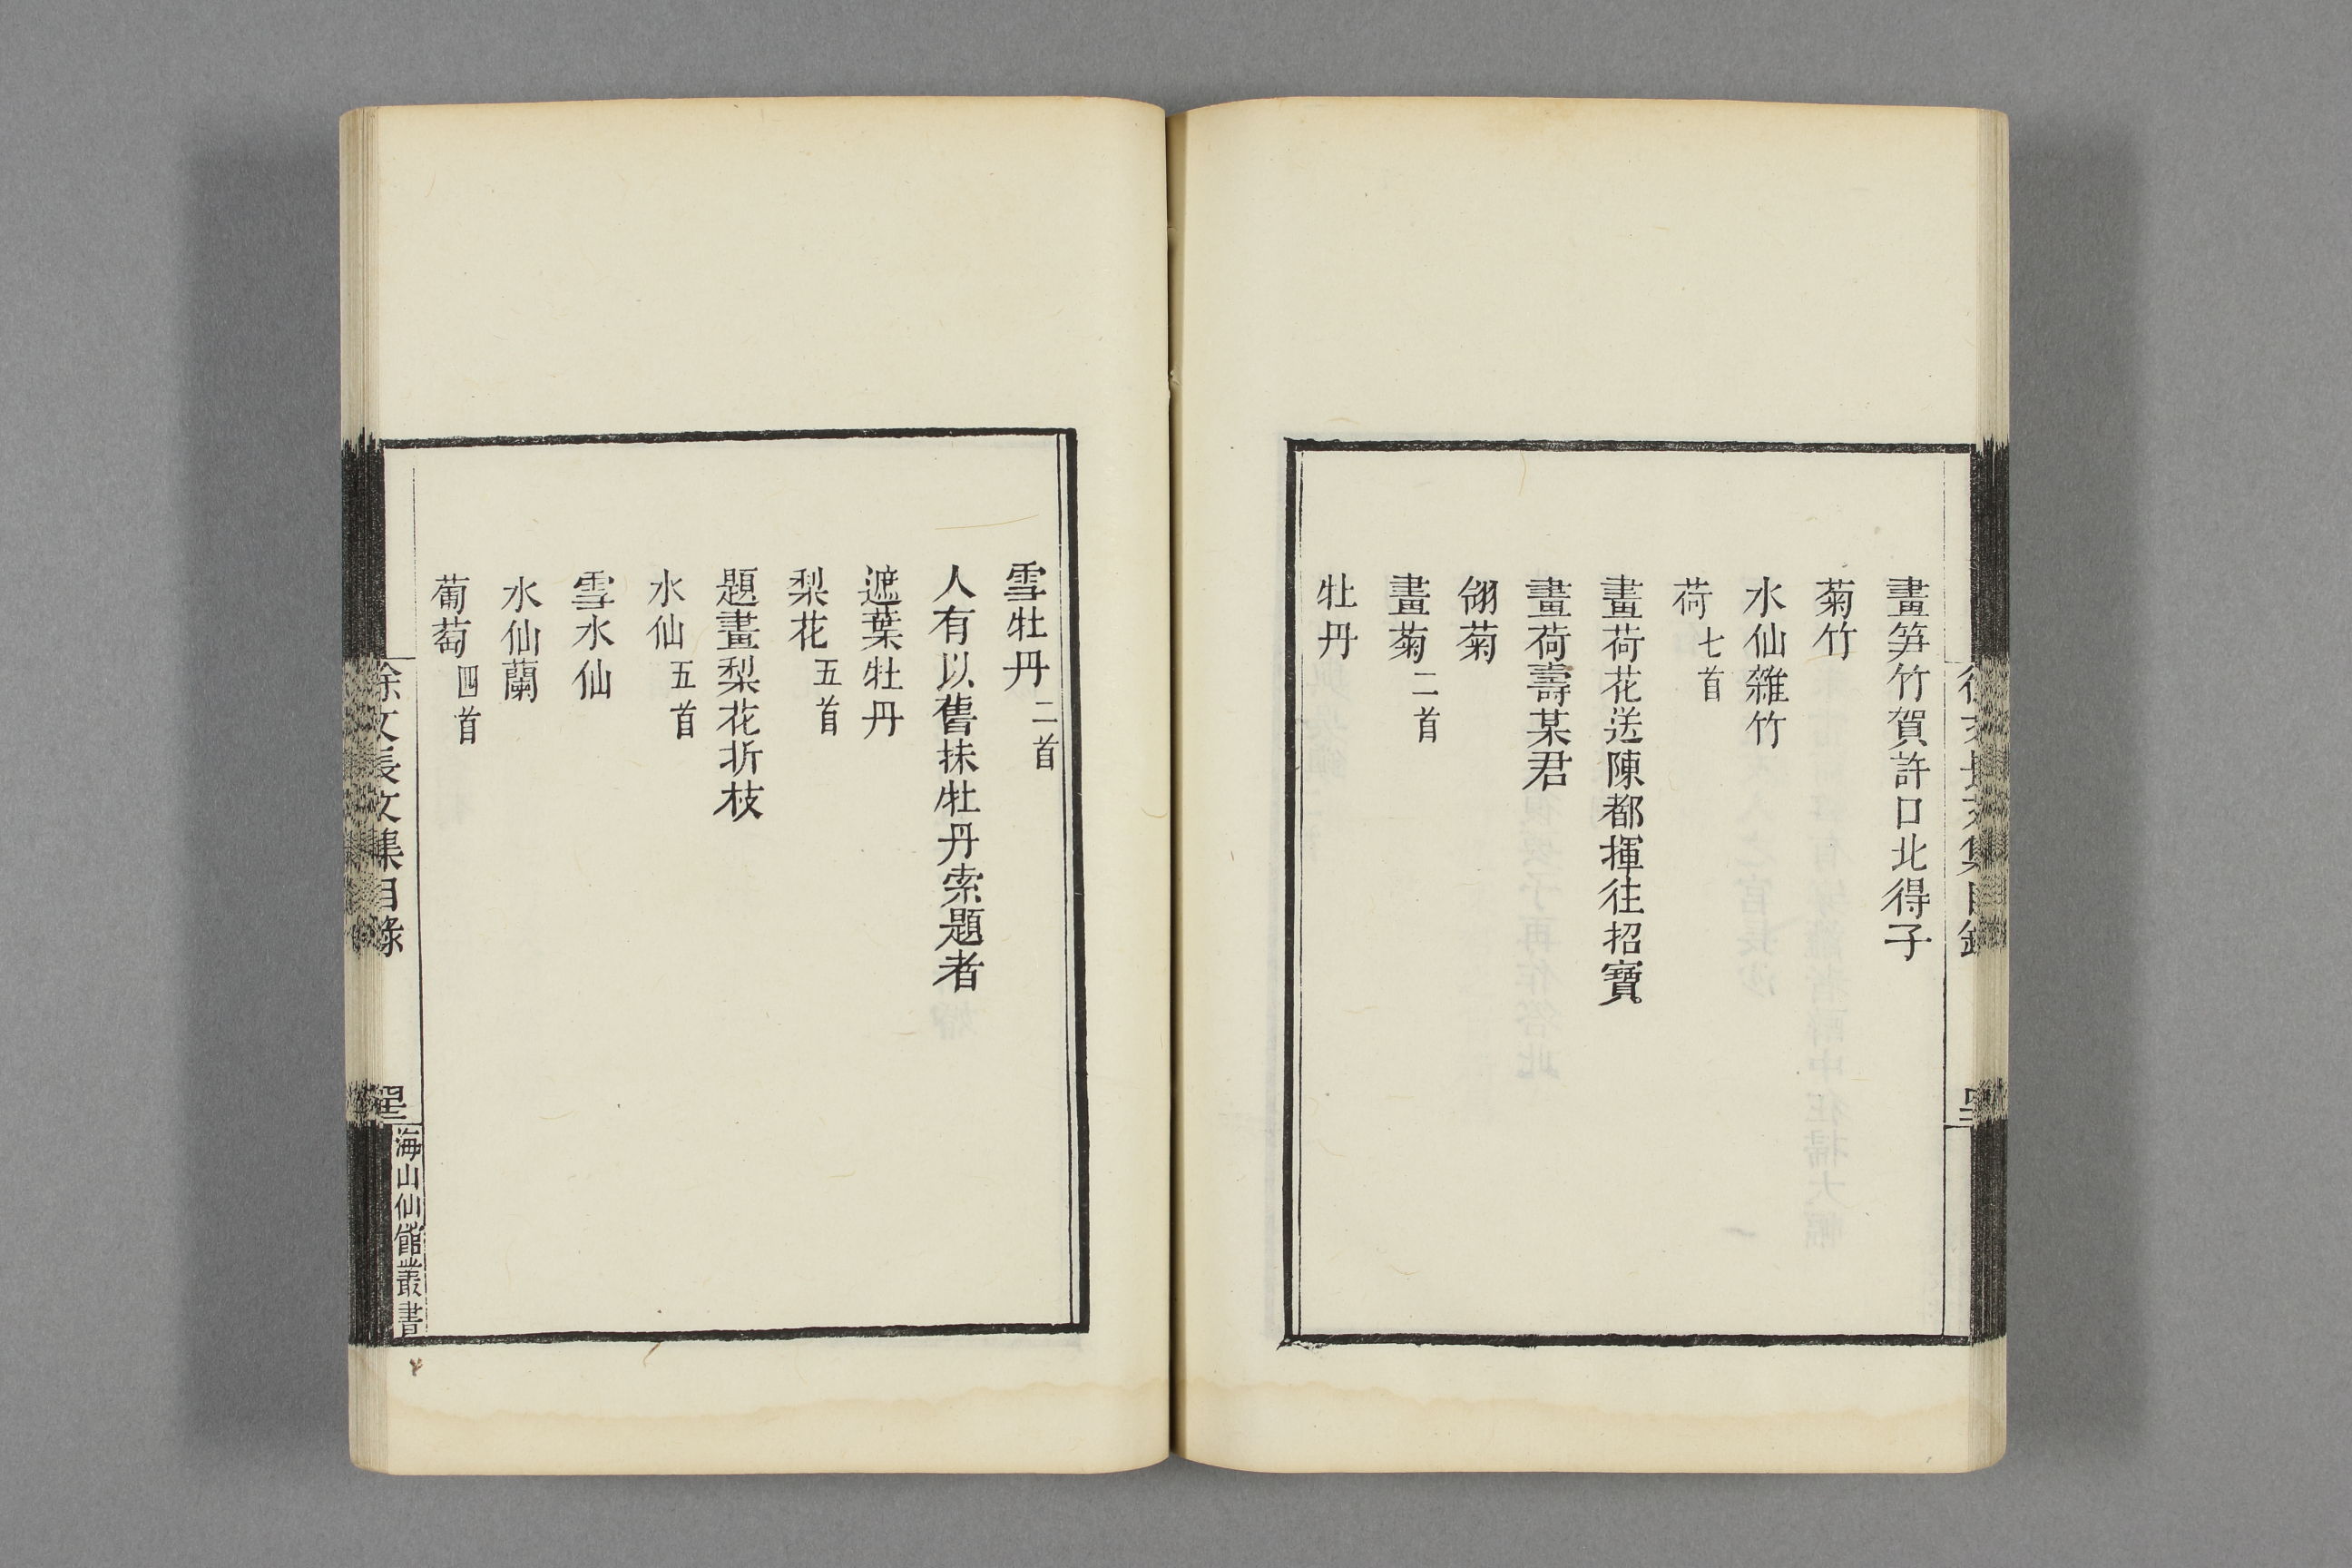 畫筍竹賀許口北得子
菊竹
水仙雜竹
荷七首
畫荷花送陳都揮往招寶
畫荷壽某君
翎菊
畫菊二首
牡丹
雪牡丹二首
人有以舊抹牡丹索題者
遮葉牡丹
梨花五首
題畫梨花折枝
水仙五首
雪水仙
水仙蘭
葡萄四首
徐文長文集目錄
海山仙館叢書